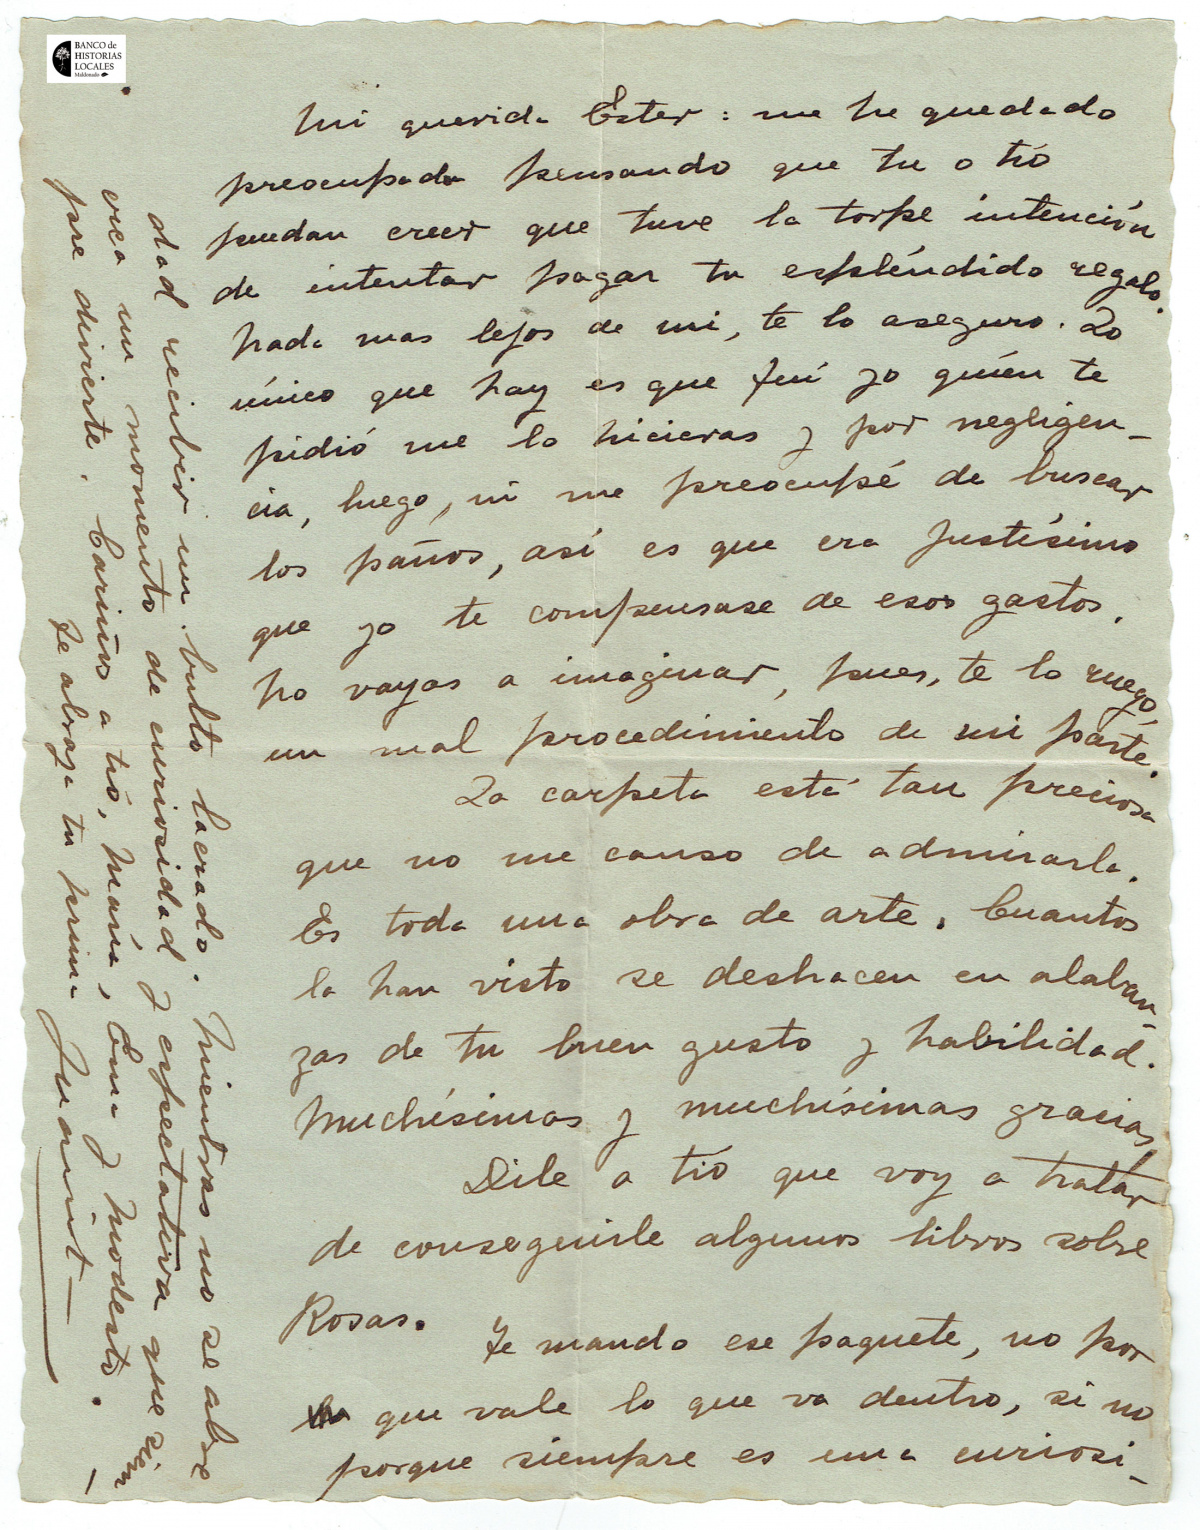 BANCO de
HISTORIAS
LOCALES
Maldonado
Mi querida Ester: me he quedado
preocupada pensando que tu o tío
puedan creer que tuve la torpe intención
de intentar pagar tu espléndido regalo.
Nada mas lejos de mi, te lo aseguro. Lo
único que hay es que fuí yo quién te
pidió me lo hicieras y por negligen-
cia, luego, ni me preocupé de buscar
los paños, así es que era justísimo
que yo te compensase de esos gastos.
No vayas a imaginar, pues, te lo ruego,
un mal procedimiento de mi parte.
La carpeta está tan preciosa
que no me canso de admirarla.
Es toda una obra de arte. Cuantos
la han visto se deshacen en alaban-
zas de tu buen gusto y habilidad.
Muchísimas y muchísimas gracias,
Dile a tío que voy a tratar
de conseguirle algunos libros sobre
Rosas.
Te mando ese paquete, no por
que vale lo que va dentro, si no
porque siempre es una curiosi-
dad recibir un bulto lacrado. Mientras no se abre
vea un momento de curiosidad y expectativa que siem-
pre divierte. Cariños a tío, María, Ema y Modesto.
Te abraza tu prima